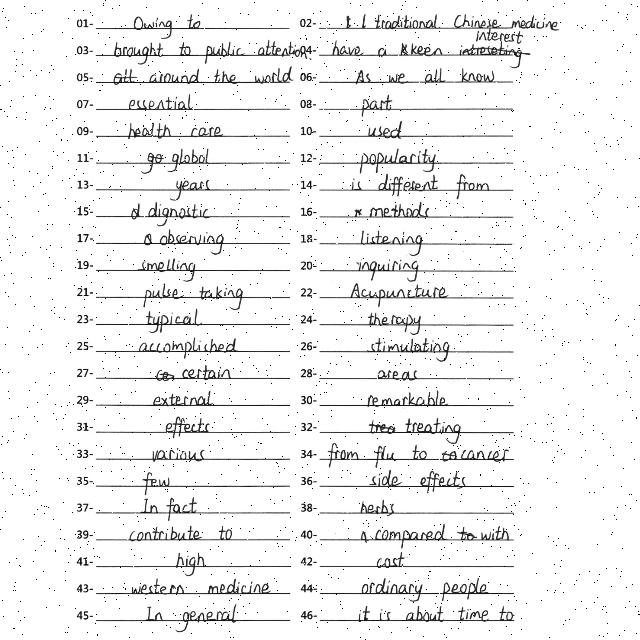 01- Owing to 02- traditional Chinese medicine
03- brought to public attention 04- have a keen interest
05- all around the world 06- As we all know
07- essential 08- part
09- health care 10- used
11- go global 12- popularity
13- years 14- is different from
15- dignostic 16- methods
17- observing 18- listening
19- smelling 20- inquiring
21- pulse taking 22- Acupuncture
23- typical 24- therapy
25- accomplished 26- stimulating
27- certain 28- areas
29- external 30- remarkable
31- effects 32- treating
33- various 34- from flu to cancer
35- few 36- side effects
37- In fact 38- herbs
39- contribute to 40- compared with
41- high 42- cost
43- western medicine 44- ordinary people
45- In general 46- it is about time to